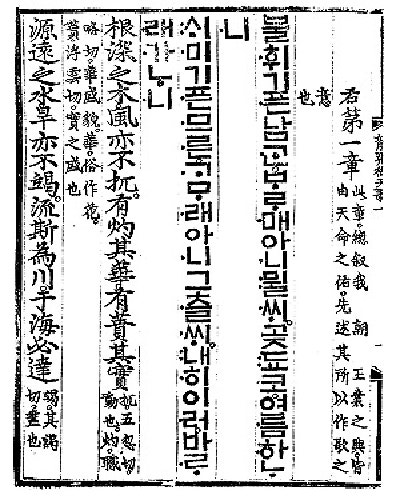 右第一章
此章總叙我 朝 王業之興皆
由天命之佑先述其所以作歌之
意
也
불휘기픈남ᄀᆞᆫᄇᆞᄅᆞ매아니뮐ᄊᆡ。곶됴코여름하ᄂᆞ
니
ᄉᆡ미기픈므른ᄀᆞᄆᆞ래아니그츨ᄊᆡ。내히이러바ᄅᆞ
래가ᄂᆞ니
根深之木風亦不扤。有灼其華有蕡其實
扤五忽切。
動也。灼職
略切。華盛貌。華俗作花。
蕡浮雲切。實之盛也
源遠之水旱亦不竭。流斯為川于海必達
竭其謁
切。盡也